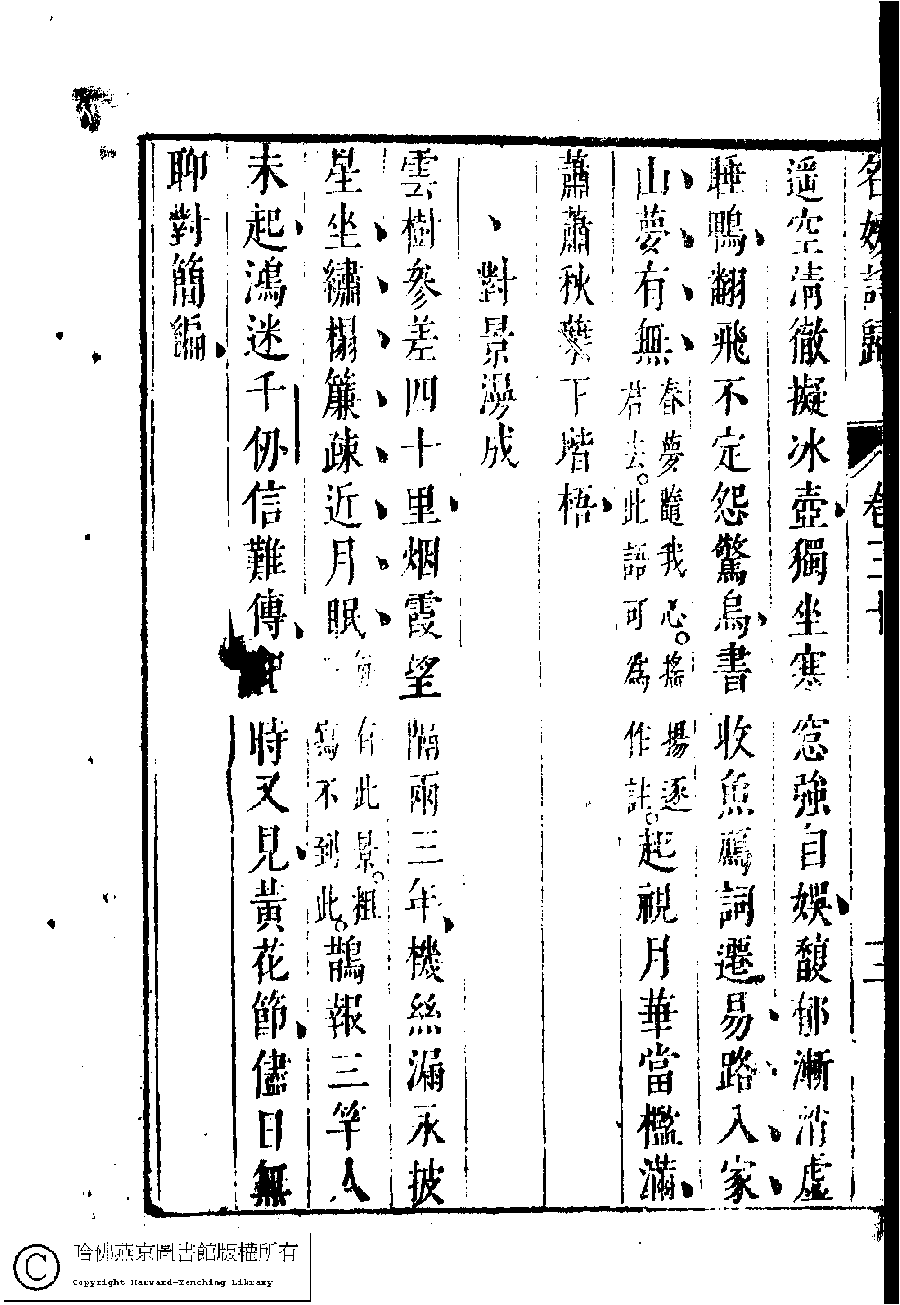 名媛詩歸 卷三十 三
遥空清徹擬冰壺獨坐寒窓強自娛馥郁漸消虛
睡鴨翻飛不定怨驚烏書收魚雁詞遷易路入家
山夢有無春夢隨我心。搖揚逐君去。此語可為作註。起視月華當檻滿
蕭蕭秋葉下堦梧
對景漫成
雲樹參差四十里烟霞望隔兩三年機絲漏永披
星坐繡榻簾疎近月眠有此景。粗寫不到此。鵲報三竿人
未起鴻迷千仞信難傳時又見黃花節儘日無
聊對簡編
哈佛燕京圖書館版權所有
Copyright Harvard-Yenching Library